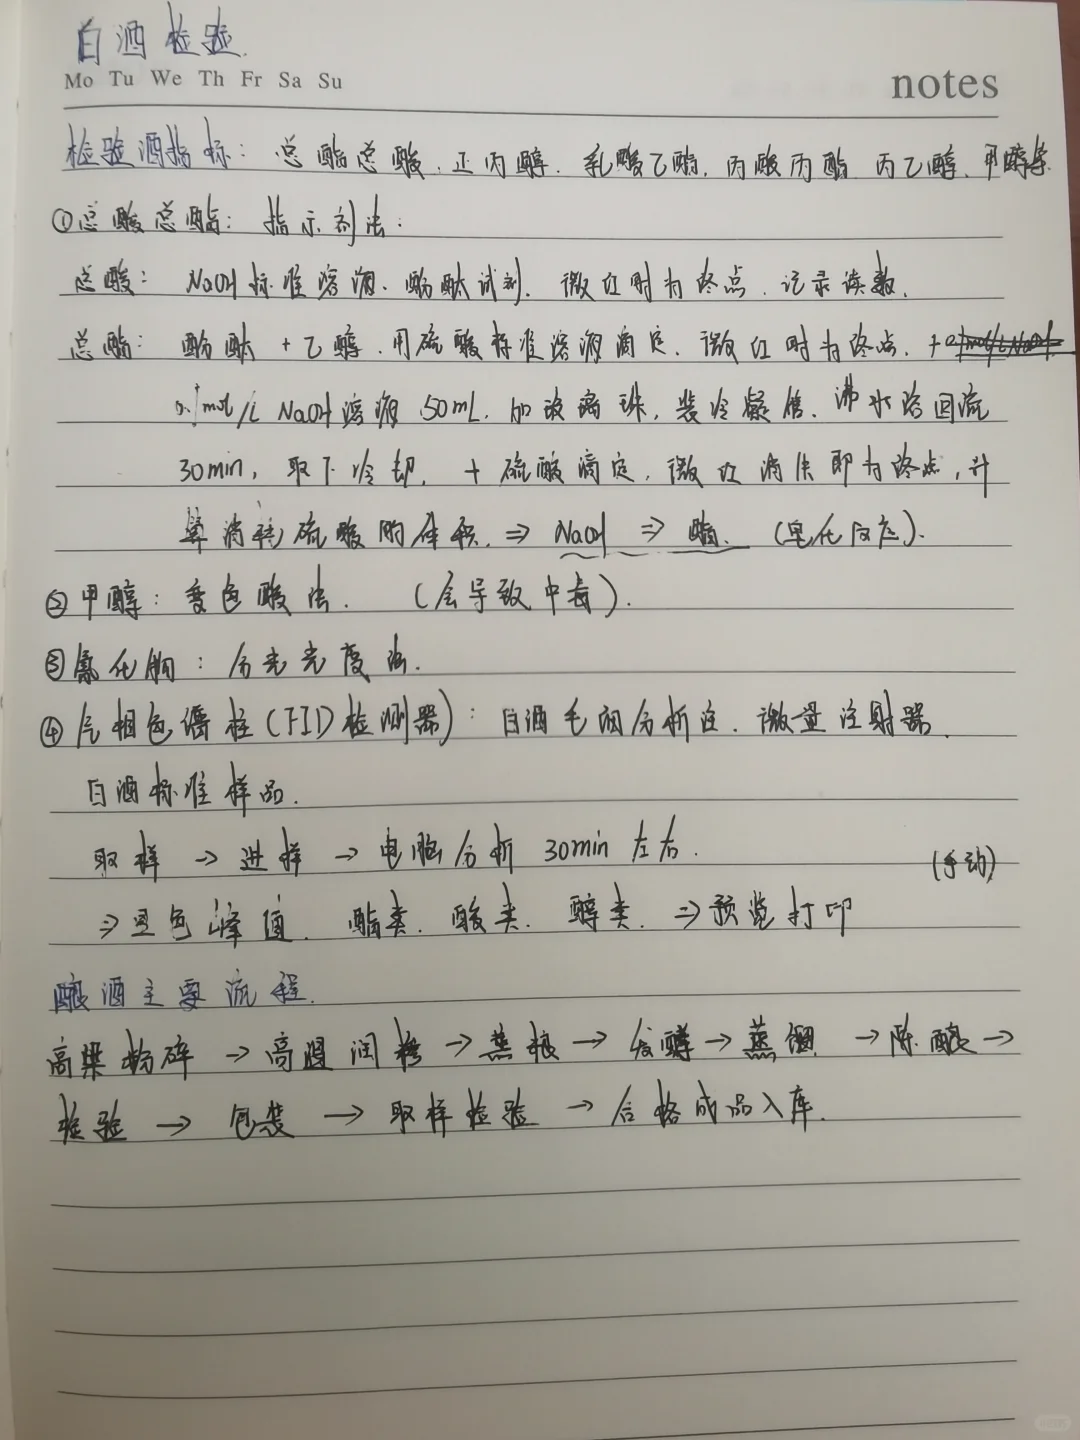 白酒检验.
Mo Tu We Th Fr Sa Su
notes
检验酒指标: 总酯总酸. 正丙醇. 乳酸乙酯. 丙酸丙酯 丙乙醇. 甲醇等.
①总酸总酯: 指示剂法:
总酸: NaOH标准溶液. 酚酞试剂. 微红时为终点. 记录读数.
总酯: 酚酞 + 乙醇. 用硫酸标准溶液滴定. 微红时为终点. +
0.1mol/L NaOH溶液 50mL. 加玻璃珠, 装冷凝管. 沸水浴回流
30min, 取下冷却. + 硫酸滴定, 微红消失即为终点, 计
算消耗硫酸的体积. ⇒ NaOH ⇒ 酯. (皂化反应).
②甲醇: 变色酸法. (会导致中毒).
③氰化物: 分光光度法.
④气相色谱柱(FID检测器): 白酒毛细分析柱. 微量注射器.
白酒标准样品.
取样 → 进样 → 电脑分析 30min左右.
(手动)
⇒ 峰值. 酯类. 酸类. 醇类. ⇒ 预览打印
酿酒主要流程.
高粱粉碎 → 高温润糁 → 蒸粮 → 发酵 → 蒸馏 → 陈酿 →
检验 → 包装 → 取样检验 → 合格成品入库.